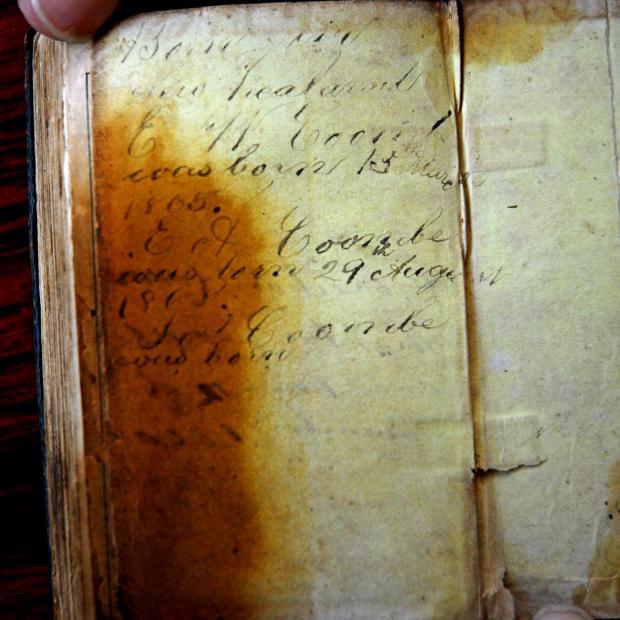 Born
New Zealand
E W Coombe
was born 15 March
1865.
E A Coombe
was born 29th August
186
Coombe
was born